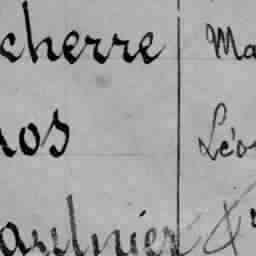 cherre Ma
nos Léo
aulnier